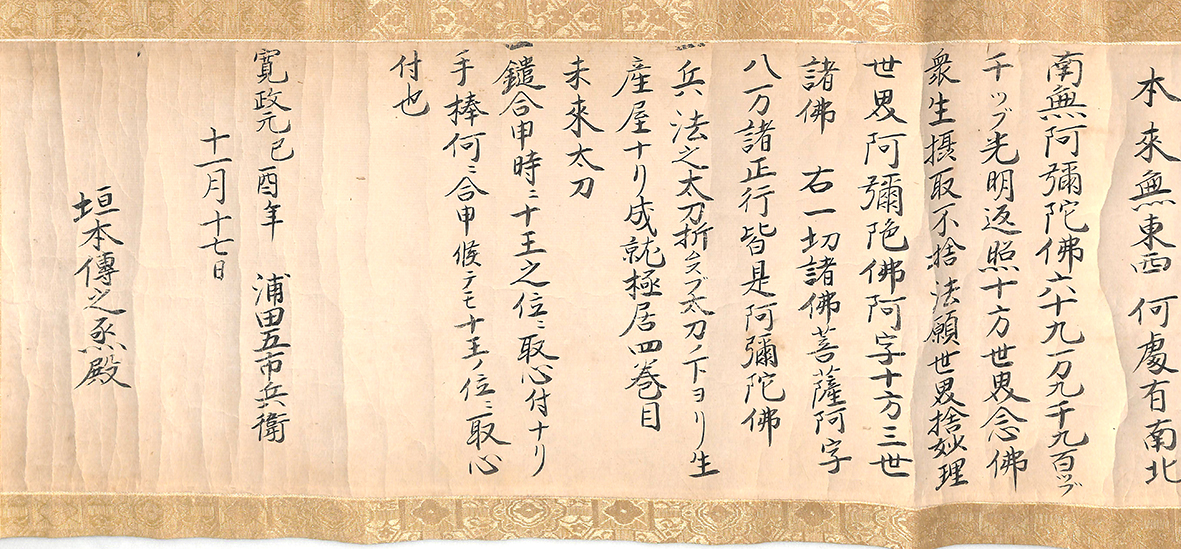 本來無東西 何處有南北
南無阿彌陀佛六十九万九千九百ツヾ
千ツヾ光明返照十方世界念佛
衆生摂取不捨法願世界捨妙理
世界阿彌陀佛阿字十方三世
諸佛 右一切諸佛菩薩阿字
八万諸正行皆是阿彌陀佛
兵法之太刀折ムスブ太刀ノ下ヨリ生
産屋ナリ成就極居四巻目
未來太刀
鑓合申時ニ十王之位ニ取心付ナリ
手棒何ニ合申候テモ十王ノ位ニ取心
付也
寛政元己酉年 浦田五市兵衛
十一月十七日
垣本傳之丞殿